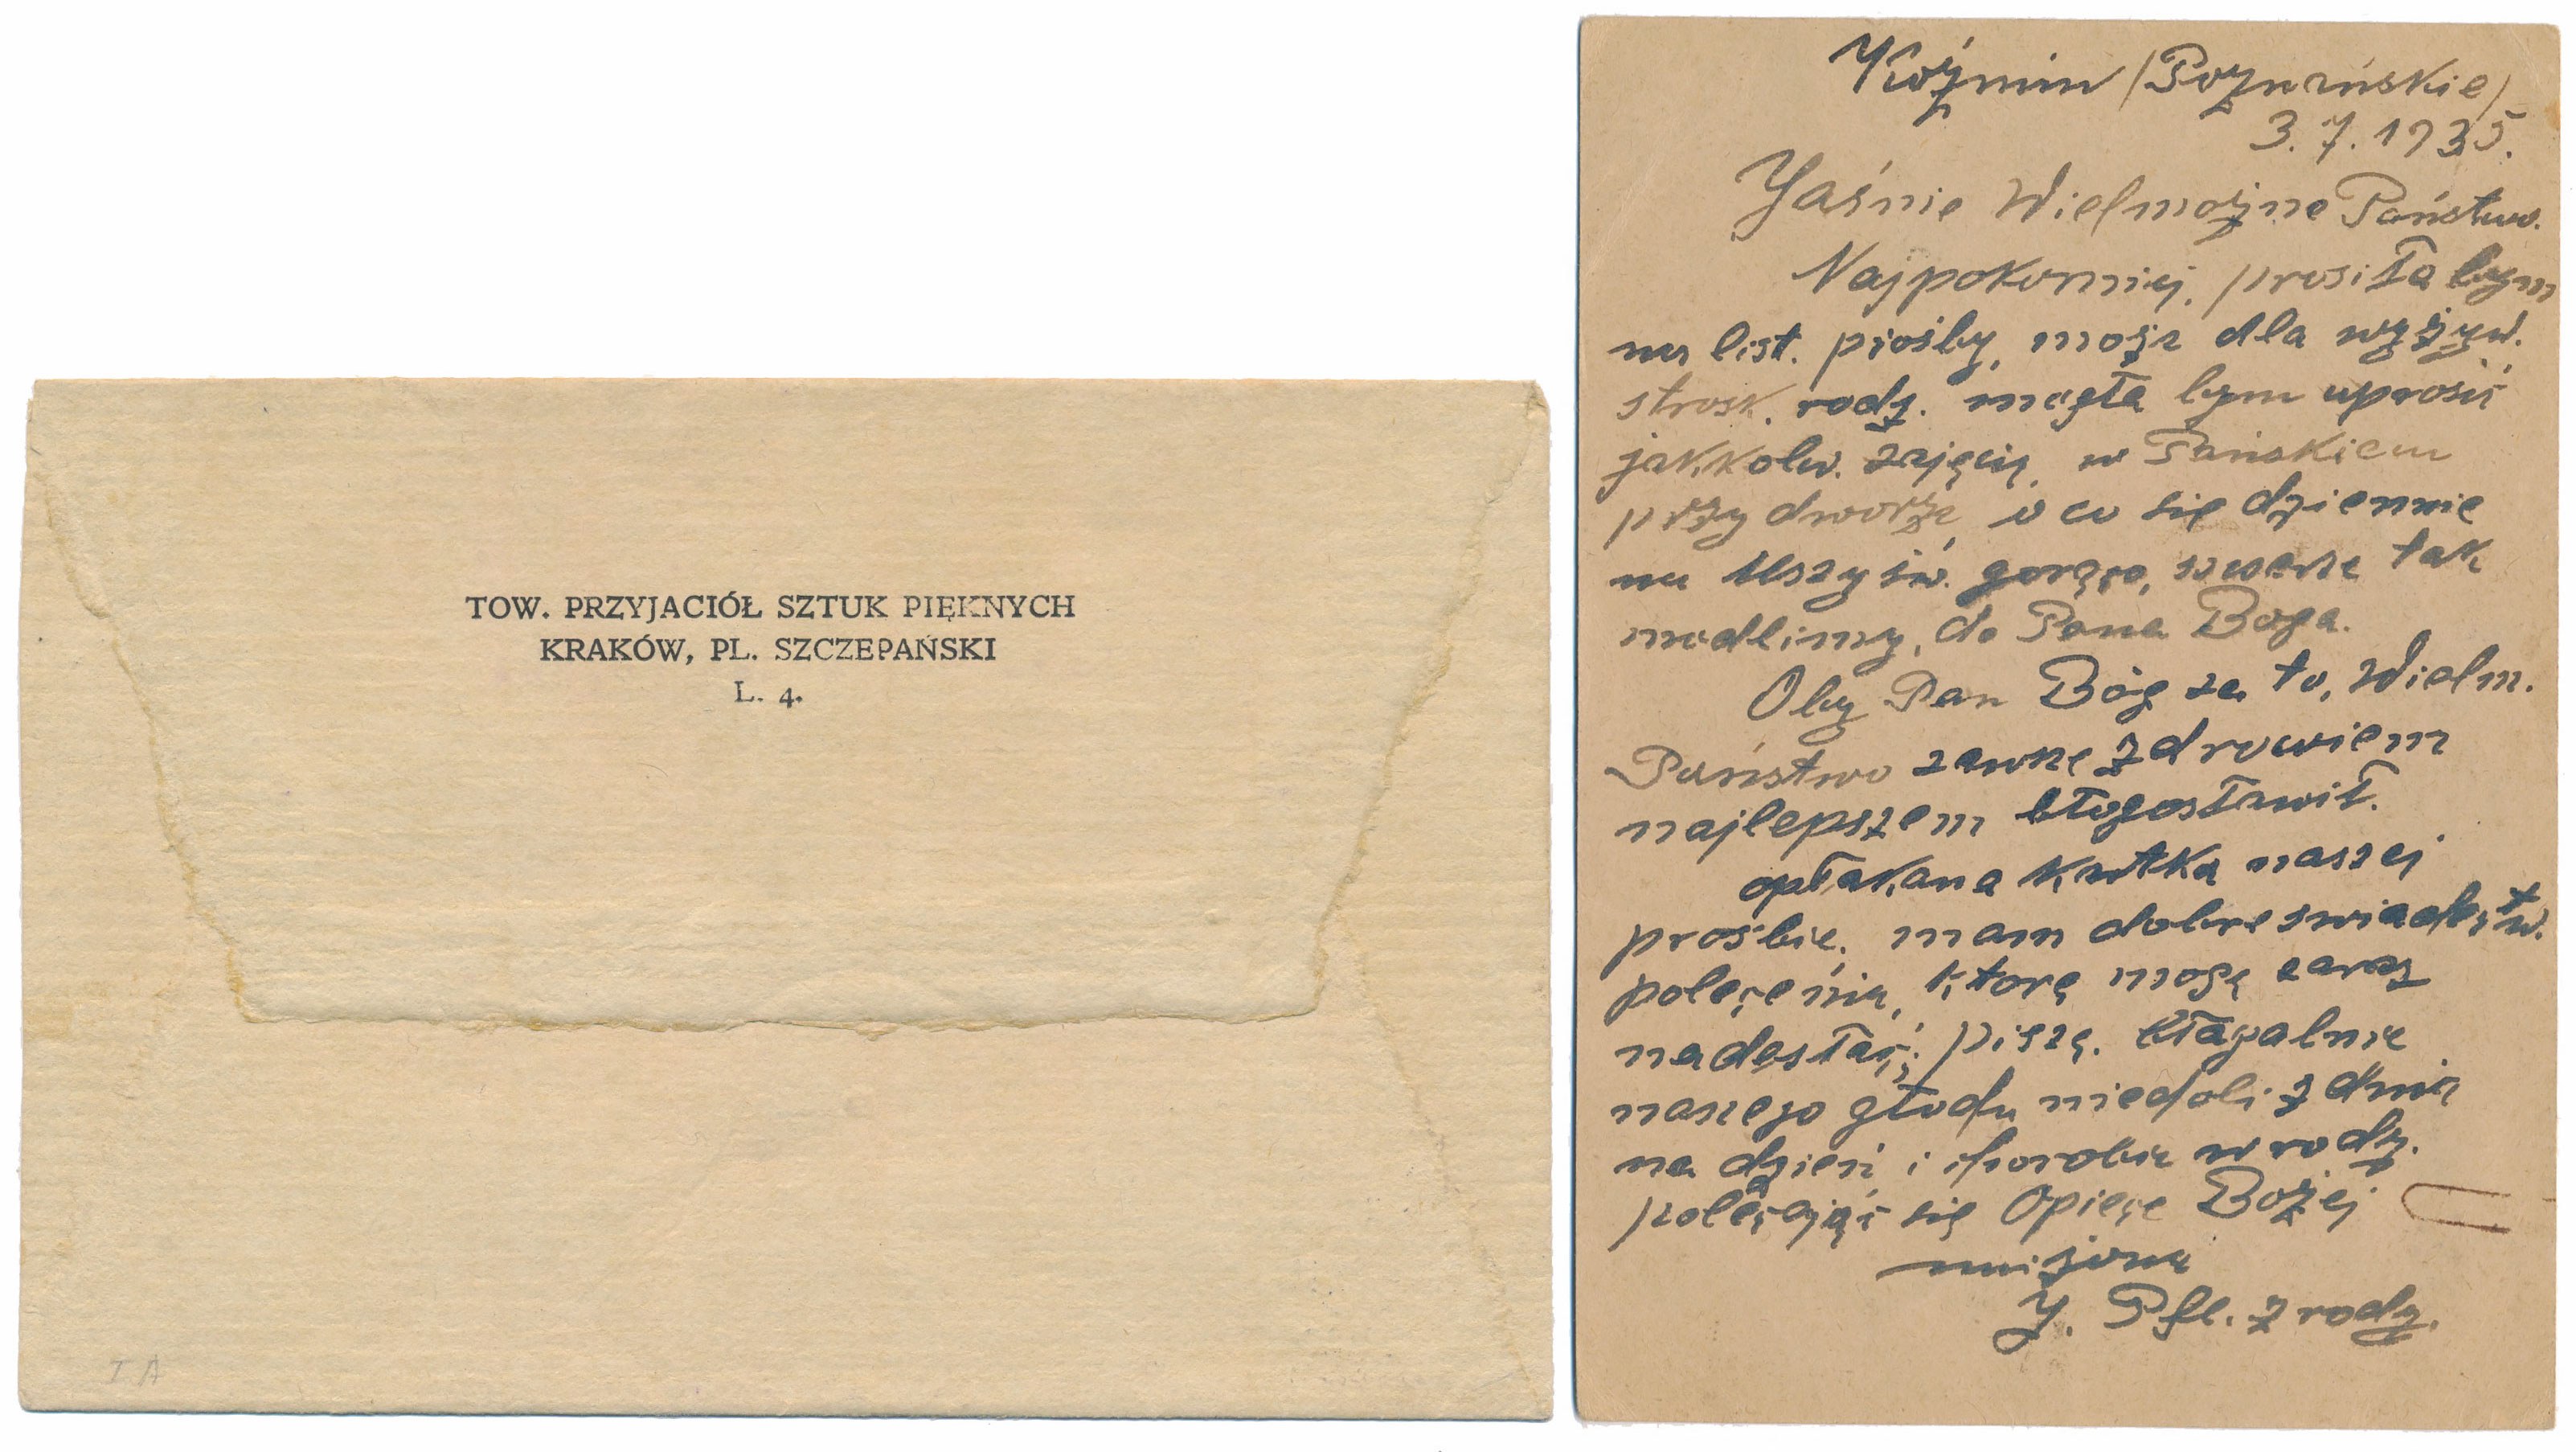 TOW. PRZYJACIÓŁ SZTUK PIĘKNYCH
KRAKÓW, PL. SZCZEPAŃSKI
L. 4.
T A
Koźmin /Poznańskie/
3.7.1935.
Jaśnie Wielmożne Państwo.
Najpokorniej, prosiła bym
na list. prośby, może dla wyżyw.
strosk. rodz. mogła bym uprosić
jak.kolw. zajęcią, w Pańskiem
przy dworze, o co się dziennie
na Mszy św. gorąco, zawsze tak
modlimy, do Pana Boga.
Oby Pan Bóg za to, Wielm.
Państwo zawsze zdrowiem
najlepszem błogosławił.
opłakana kartka naszej
prośbie, mam dobre swiadectw.
polecenia, które mogę zaraz
nadesłać; piszę. błagalnie
naszego głodu niedoli z dnia
na dzień i choroba w rodz.
polecając się Opiece Bożej
uniżona
J. Pfl. z rodz.